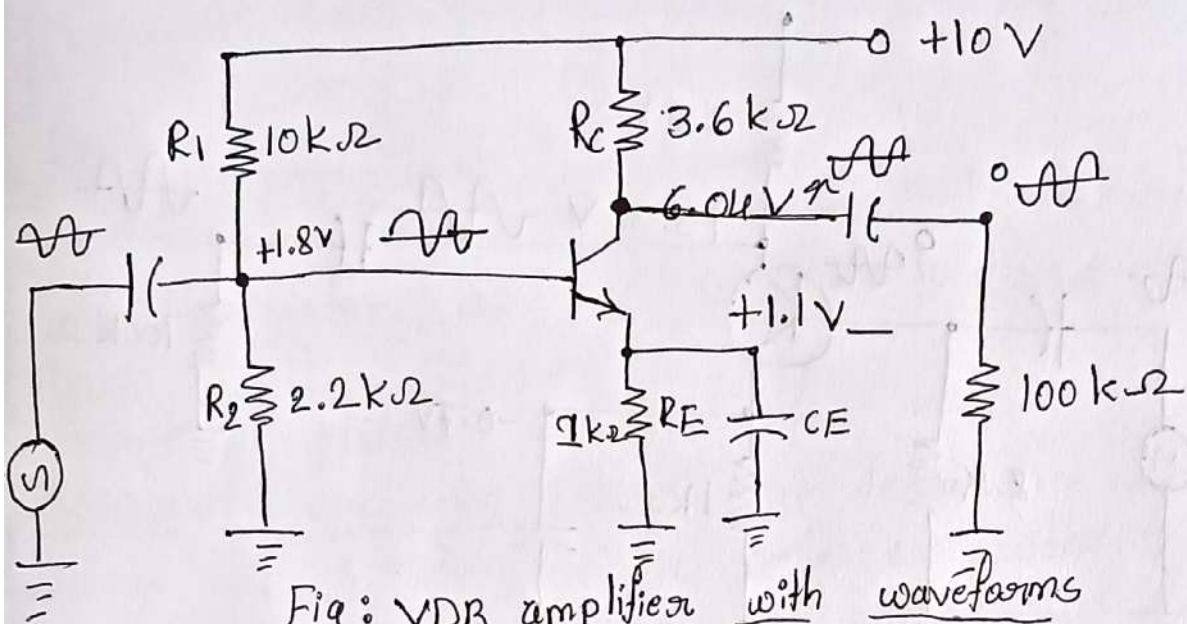 +10 V
R1 10kΩ
RC 3.6 kΩ
+1.8V
6.04V
+1.1 V
R2 2.2kΩ
1kΩ RE
CE
100 kΩ
Fig: VDB amplifier with waveforms